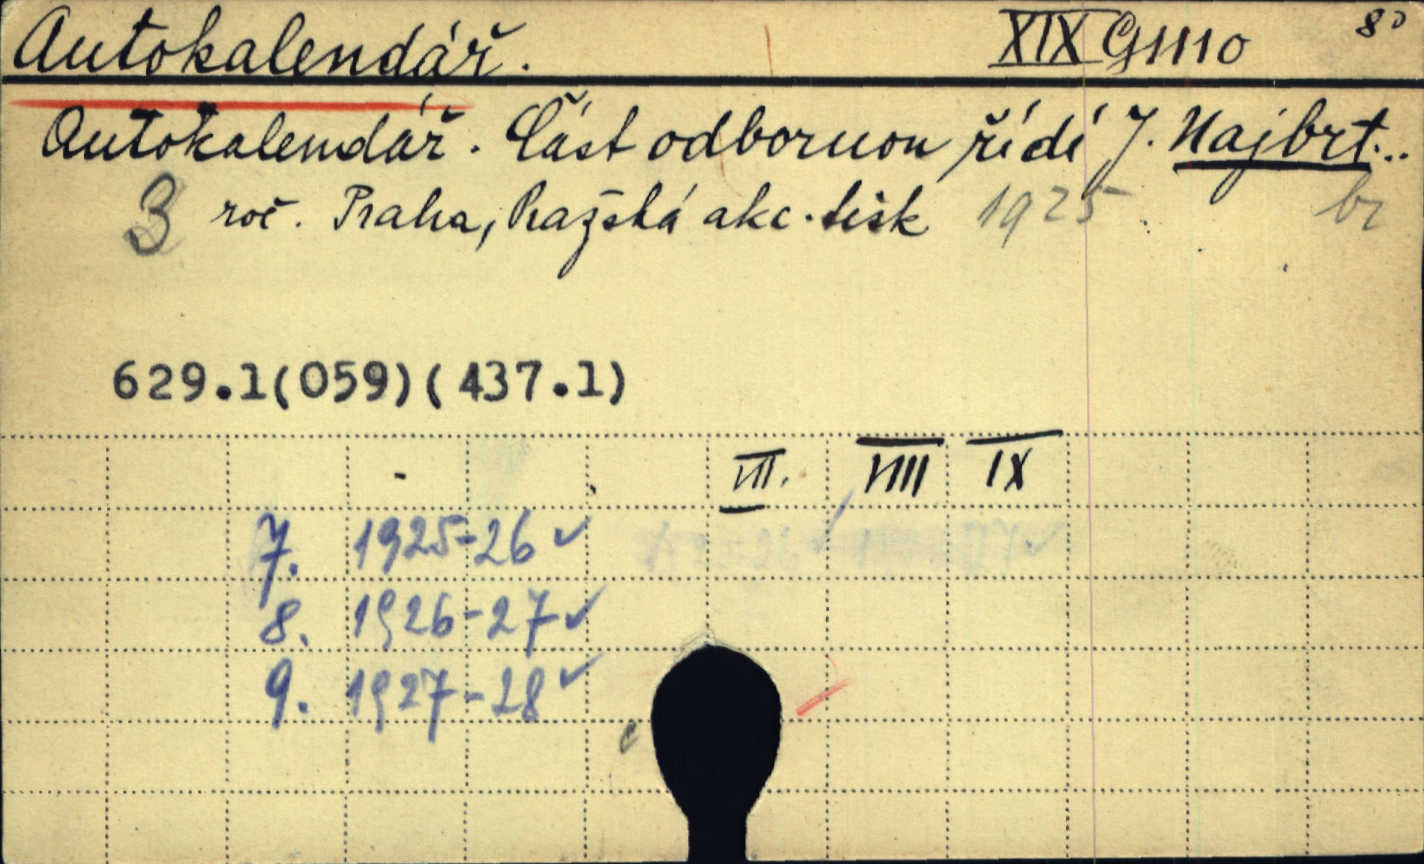 Autokalendář. XIX G 1110 8°
Autokalendář. Část odbornou řídí J. Najbrt...
3 roč. Praha, Pražská akc. tisk 1925 br
629.1(059)(437.1)
VII. VIII IX
7. 1925-26 ✓
8. 1926-27 ✓
9. 1927-28 ✓